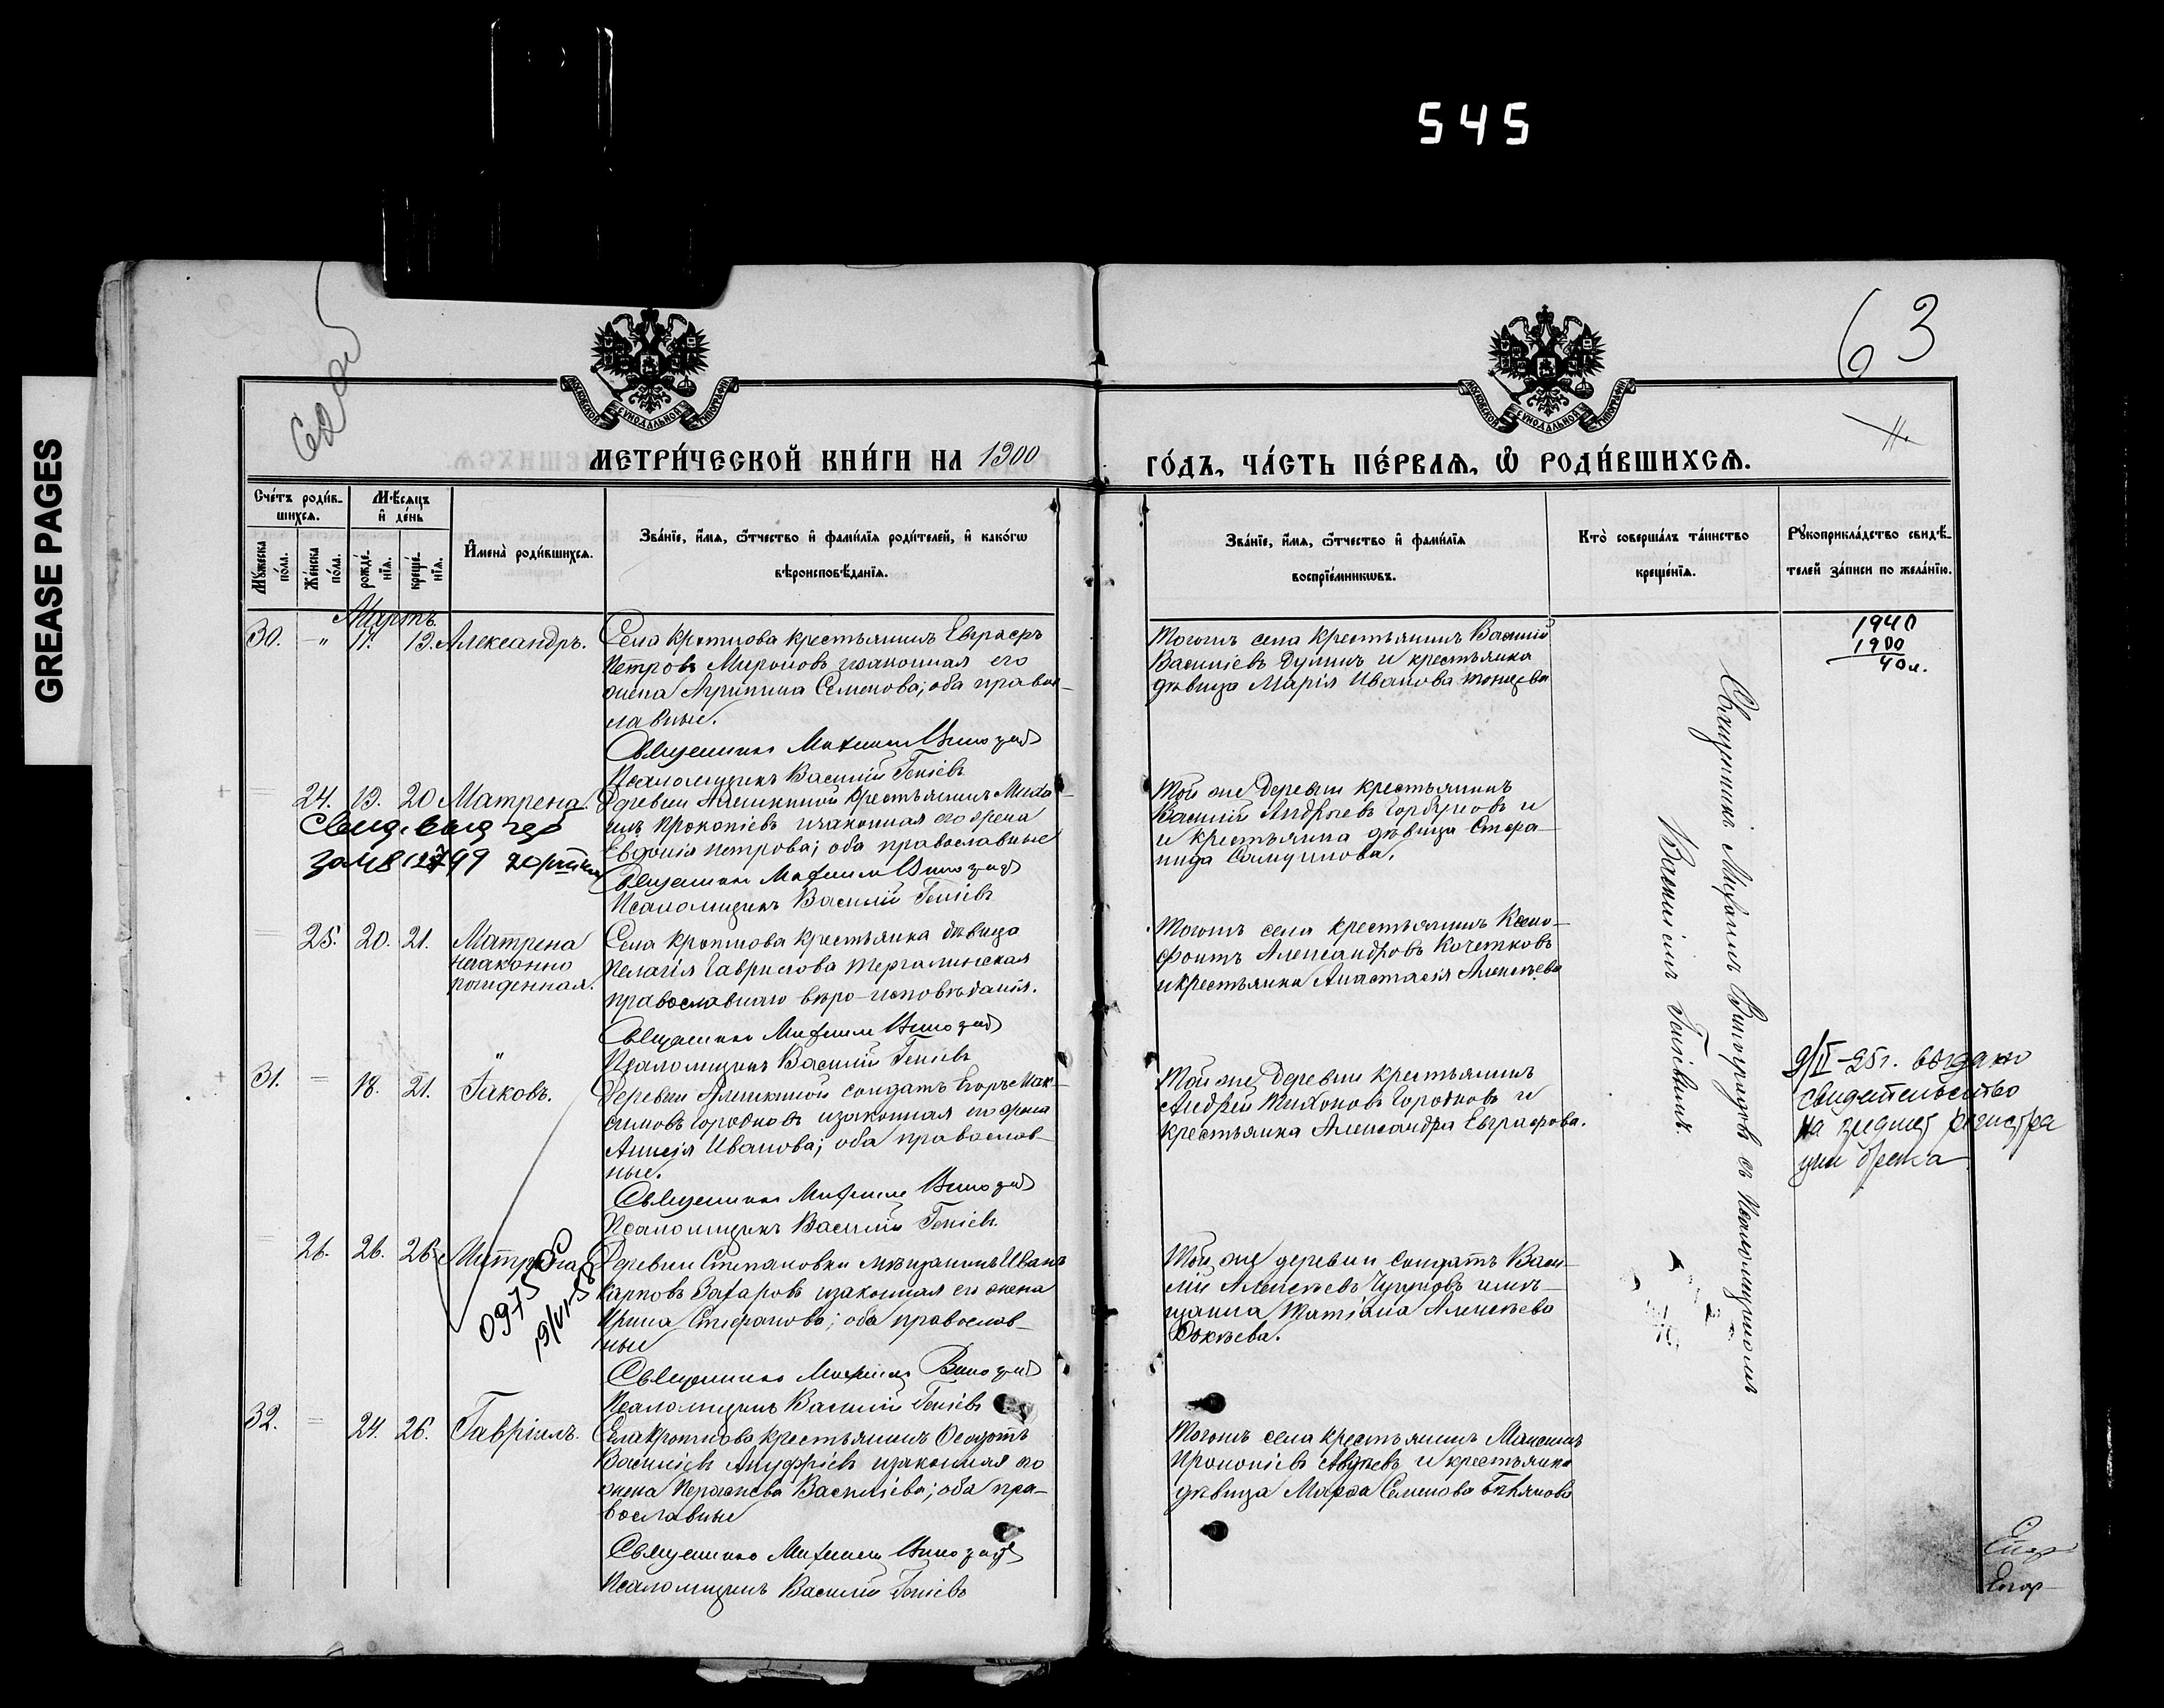 545
GREASE PAGES
63
МОСКОВСКОЙ СѴНОДАЛЬНОЙ ТИПОГРАФІИ
МОСКОВСКОЙ СѴНОДАЛЬНОЙ ТИПОГРАФІИ
МЕТРИ́ЧЕСКОЙ КНИ́ГИ НА 1900
ГО́ДЪ, ЧА́СТЬ ПЕ́РВАѦ, Ѿ РОДИ́ВШИХСѦ.
Сче́тъ роди́в-
шихсѧ.
Мѣ́сѧцъ
и҆ де́нь
Мꙋ́жеска по́ла.
Же́нска по́ла.
рожде́нїѧ.
креще́нїѧ.
И҆мена̀ роди́вшихсѧ.
Зва́нїе, и҆́мѧ, ѻ҆́тчество и҆ фами́лїѧ роди́телей, и҆ како́гѡ
вѣроисповѣ́данїѧ.
Зва́нїе, и҆́мѧ, ѻ҆́тчество и҆ фами́лїѧ
воспрїе́мникѡвъ.
Кто̀ соверша́лъ та́инство
креще́нїѧ.
Рꙋкоприкла́дство свидѣ́-
телей за́писи по жела́нїю.
Мартъ
30. " 11. 13. Александръ.
Села Кроткова крестьянинъ Евграфъ
Петровъ Мироновъ и законная его
жена Агрипина Семенова; оба право-
славные.
Священникъ Михаилъ Виноградовъ
Псаломщикъ Василій Геніевъ
Тогожъ села крестьянинъ Василій
Василіевъ Дулинъ и крестьянка
дѣвица Марія Иванова
1940
1900
40 л.
24. 19. 20 Матрена.
Деревни Алешкиной крестьянинъ Миха-
илъ Прокопіевъ и законная его жена
Евдокія Петрова; оба православные
Священникъ Михаилъ Виноградовъ
Псаломщикъ Василій Геніевъ
Той же деревни крестьянинъ
Василій Андреевъ Горбуновъ и
и крестьянка дѣвица Стефа-
нида Самуилова.
25. 20. 21. Матрена
незаконно
рожденная.
Села Кроткова крестьянка дѣвица
Пелагія Гаврилова
православнаго вѣро-исповѣданія.
Священникъ Михаилъ Виноградовъ
Псаломщикъ Василій Геніевъ
Тогожъ села крестьянинъ Ксено-
фонтъ Александровъ Кочетковъ
и крестьянка Анастасія Алексѣева
31. 18. 21. Іаковъ.
Деревни Алешкиной солдатъ Егоръ Мак-
симовъ Городновъ и законная его жена
Анисія Иванова; оба православ-
ные.
Священникъ Михаилъ Виноградовъ
Псаломщикъ Василій Геніевъ
Той же деревни крестьянинъ
Андрей Тихоновъ Городновъ и
крестьянка Александра Евграфова.
9/II-25 г. выдано
свидетельство
на предмет регистра
ции брака
26. 26. 26. Митрофа
0975
19/VI-58
Деревни Степановки мѣщанинъ Иванъ
Карповъ Захаровъ и законная его жена
Ирина Стефанова; оба православ-
ные
Священникъ Михаилъ Виноградовъ
Псаломщикъ Василій Геніевъ
Той же деревни солдатъ Васи-
лій Алексѣевъ и мѣ-
щанка Татіана Алексѣева
32. 24. 26. Гавріилъ.
Села Кроткова крестьянинъ Ѳеодотъ
Василіевъ Ануфріевъ и законная его
жена Васильева; оба пра-
вославные
Священникъ Михаилъ Виноградовъ
Псаломщикъ Василій Геніевъ
Тогожъ села крестьянинъ Максимъ
Прокопіевъ Авдѣевъ и крестьянка
дѣвица Марѳа Семенова
Священникъ Михаилъ Виноградовъ съ Псаломщикомъ
Василіемъ Геніевымъ.
Егор